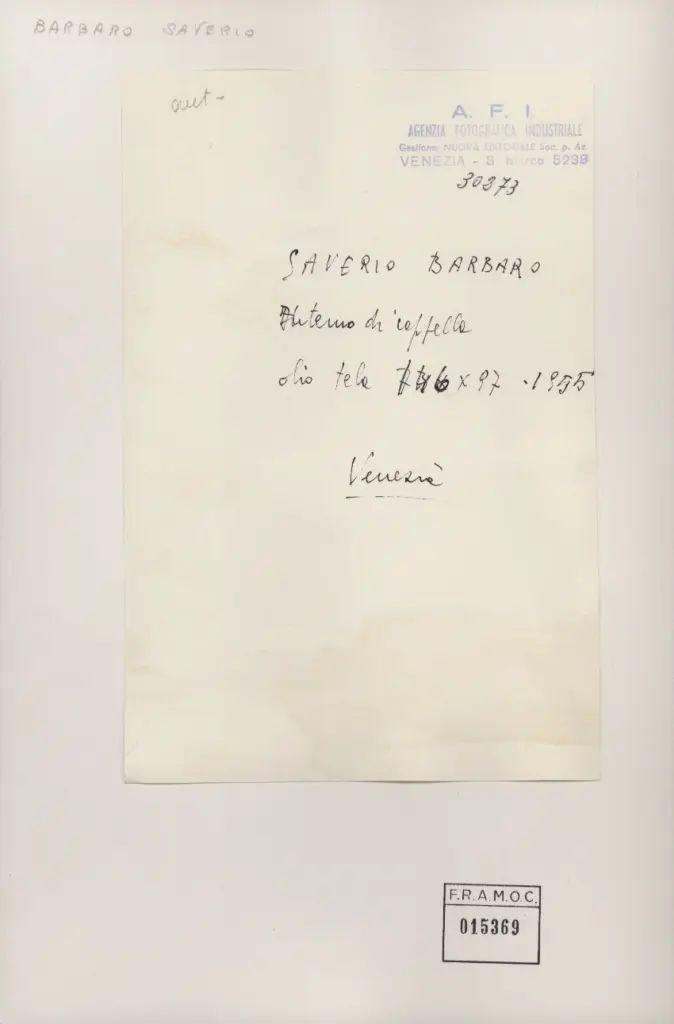 BARBARO SAVERIO
aut-
A. F. I.
AGENZIA FOTOGRAFICA INDUSTRIALE
Gestione NUOVA EDITORIALE Soc. p. Az.
VENEZIA - S. Marco 5239
30373
SAVERIO BARBARO
Interno di cappella
olio tela x 97 - 1955
Venezia
F.R.A.M.O.C.
015369